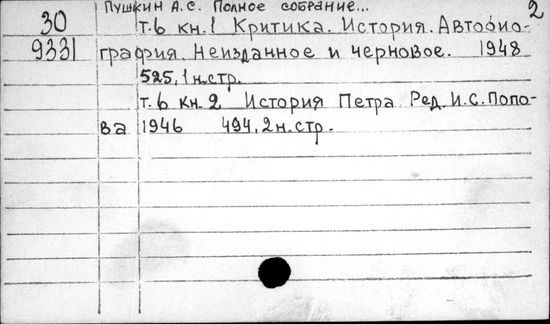 Пушкин А.С. Полное собрание... 2
30 т.6 кн.1 Критика. История. Автобио-
9331 графия. Неизданное и черновое. 1948
525, 1 н.стр.
т.6 кн.2 История Петра. Ред. И.С. Попо-
ва 1946 494, 2 н.стр.